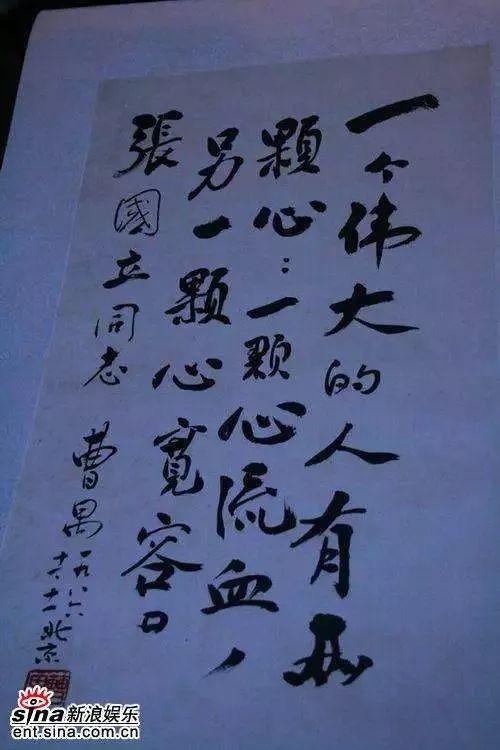 一个伟大的人有两
顆心：一顆心流血，
另一顆心寬容。
張國立同志
曹禺 一九八六
北京
sina新浪娱乐
ent.sina.com.cn